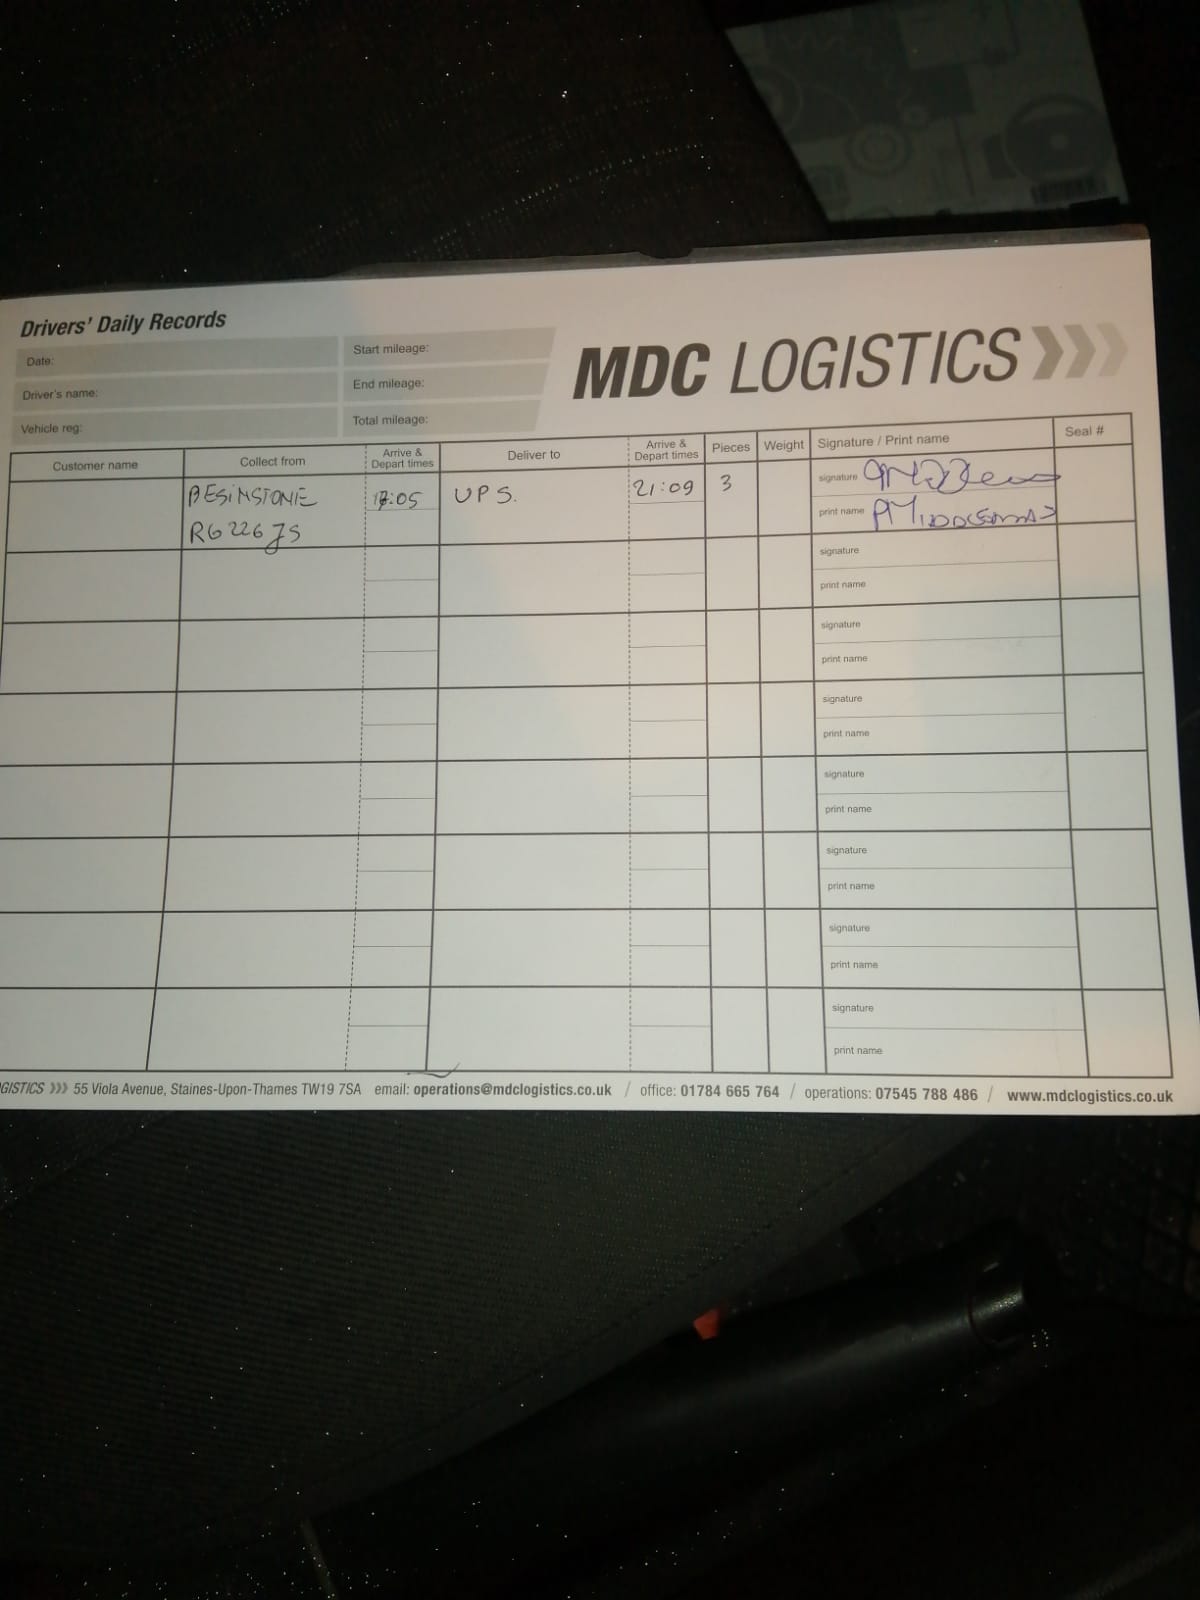 Drivers' Daily Records
Date:
Driver's name:
Vehicle reg:
Start mileage:
End mileage:
Total mileage:
MDC LOGISTICS
Customer name
Collect from
Arrive &
Depart times
Deliver to
Arrive &
Depart times
Pieces
Weight
Signature / Print name
Seal #
BESINSTONIE
RG226JS
UPS.
21:09
3
signature
print name
signature
print name
signature
print name
signature
print name
signature
print name
signature
print name
signature
print name
signature
print name
GISTICS 55 Viola Avenue, Staines-Upon-Thames TW19 7SA email: operations@mdclogistics.co.uk / office: 01784 665 764 / operations: 07545 788 486 / www.mdclogistics.co.uk